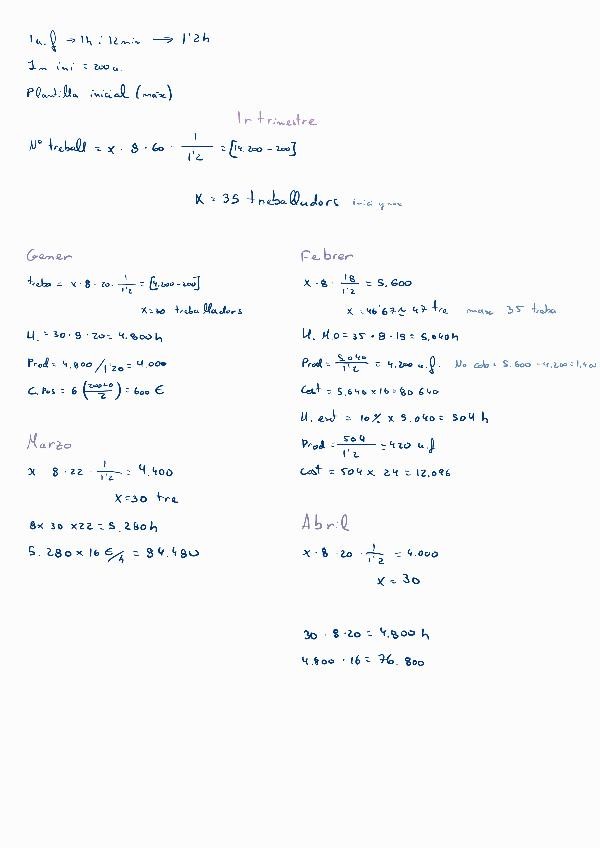 1u.f → 1h i 12min → 1'2h
In ini = 200u.
Plantilla inicial (max)
1r trimestre
Nº treball = x · 8 · 60 · 1/1'2 = [14.200 - 200]
X = 35 treballadors
Gener
treba = x · 8 · 20 · 1/1'2 = [4.200 - 200]
x = 30 treballadors
H. = 30 · 8 · 20 = 4.800h
Prod = 4.800/1'20 = 4.000
C. Pos = 6 (200+0/2) = 600 €
Marzo
x 8 · 22 · 1/1'2 = 4.400
X = 30 tre
8 x 30 x 22 = 5.280h
5.280 x 16 €/h = 84.480
Febrer
x · 8 · 18/1'2 = 5.600
x = 46'67 ≈ 47 tre max 35 treba
H. M O = 35 · 8 · 18 = 5.040h
Prod = 5.040/1'2 = 4.200 u.f. No cob = 5.600 - 4.200 = 1.400
Cost = 5.040 x 16 = 80 640
H. ext = 10% x 5.040 = 504 h
Prod = 504/1'2 = 420 u.f
Cost = 504 x 24 = 12.096
Abril
x · 8 · 20 · 1/1'2 = 4.000
x = 30
30 · 8 · 20 = 4.800 h
4.800 · 16 = 76.800